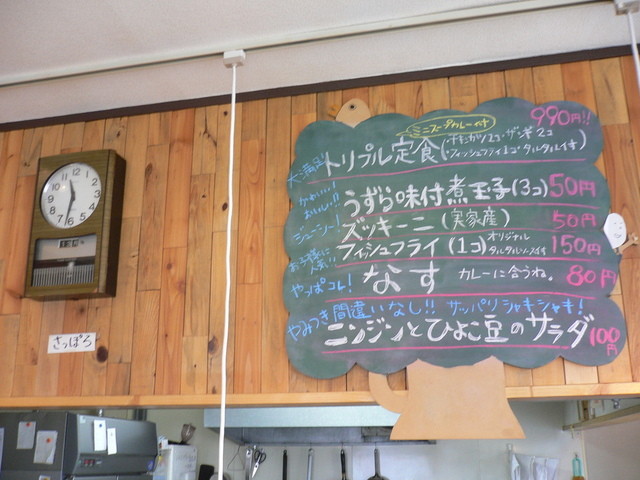 ミニスープカレー付
990円!!
大満足
トリプル定食
チキンカツ2コ・ザンギ2コ
フィッシュフライ1コ タルタル付
かわいい!!
おいしい!!
うずら味付煮玉子(3コ) 50円
ジューシー!
ズッキーニ(実家産) 50円
お子様に
人気!!
フィッシュフライ(1コ) オリジナル
タルタルソース付 150円
やっぱコレ! なす カレーに合うね。 80円
やみつき間違いなし!! サッパリシャキシャキ!
ニンジンとひよこ豆のサラダ 100円
さっぽろ
12
1
2
3
4
5
6
7
8
9
10
11